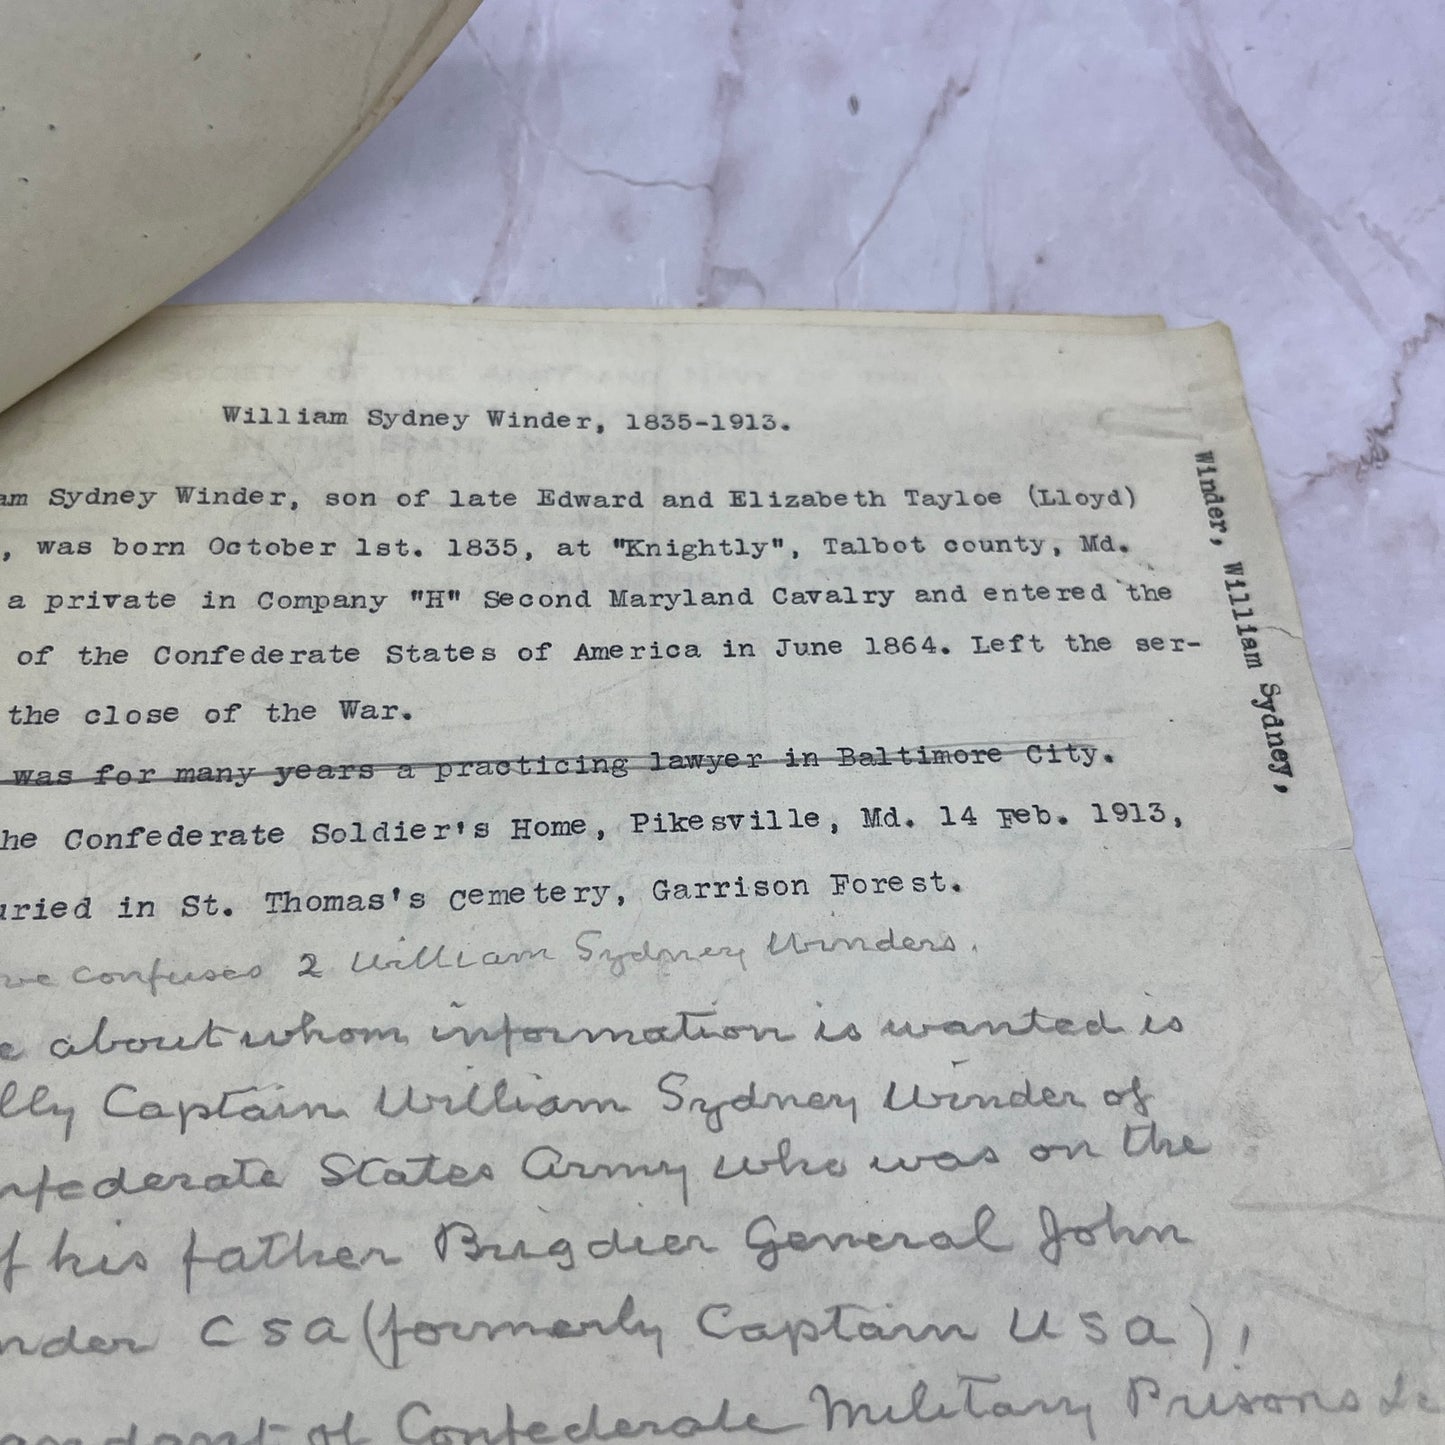 William Sydney Winder, 1835-1913.
am Sydney Winder, son of late Edward and Elizabeth Tayloe (Lloyd)
, was born October 1st. 1835, at "Knightly", Talbot county, Md.
a private in Company "H" Second Maryland Cavalry and entered the
of the Confederate States of America in June 1864. Left the ser-
the close of the War.
was for many years a practicing lawyer in Baltimore City.
he Confederate Soldier's Home, Pikesville, Md. 14 Feb. 1913,
uried in St. Thomas's cemetery, Garrison Forest.
ve confuses 2 William Sydney Winders.
e about whom information is wanted is
lly Captain William Sydney Winder of
nfederate States Army who was on the
f his father Brigdier General John
nder CSA (formerly Captain USA)!
andant of Confederate Military Prisons
Winder, William Sydney,